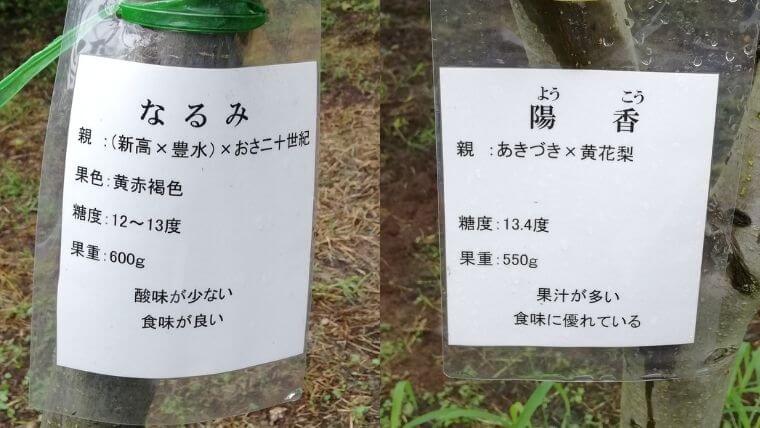 なるみ
親 :(新高×豊水)×おさ二十世紀
果色:黄赤褐色
糖度:12～13度
果重:600g
酸味が少ない
食味が良い
よう こう
陽 香
親 :あきづき×黄花梨
糖度:13.4度
果重:550g
果汁が多い
食味に優れている